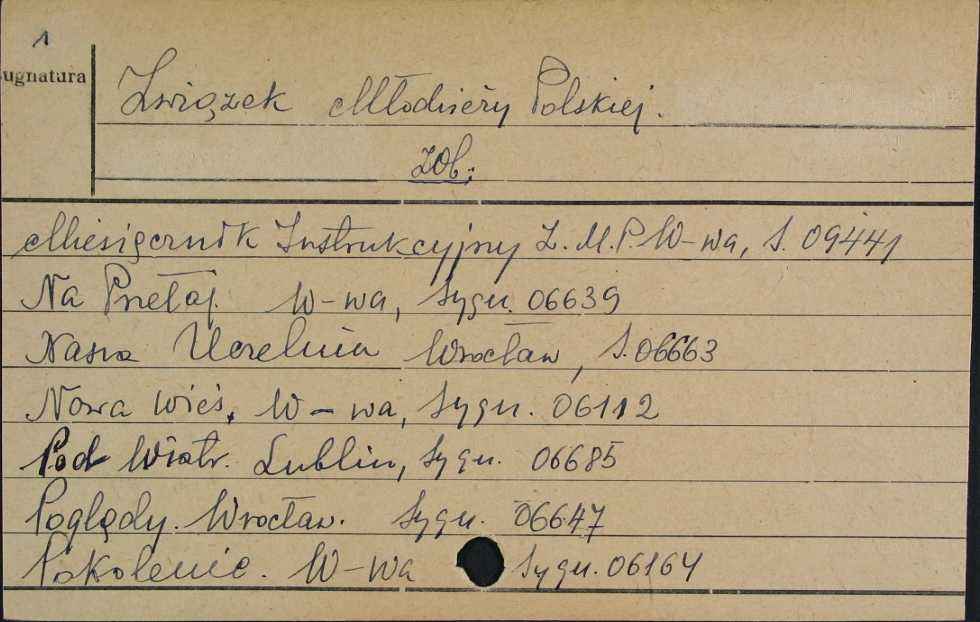 1
ygnatura
Związek Młodzieży Polskiej.
zob:
Miesięcznik Instrukcyjny Z.M.P. W-wa, S. 09441
Na Przełaj. W-wa, Sygn. 06639
Nasza Uczelnia Wrocław, S. 06663
Nowa Wieś, W-wa, Sygn. 06112
Pod Wiatr. Lublin, Sygn. 06685
Poglądy. Wrocław. Sygn. 06647
Pokolenie. W-wa Sygn. 06164